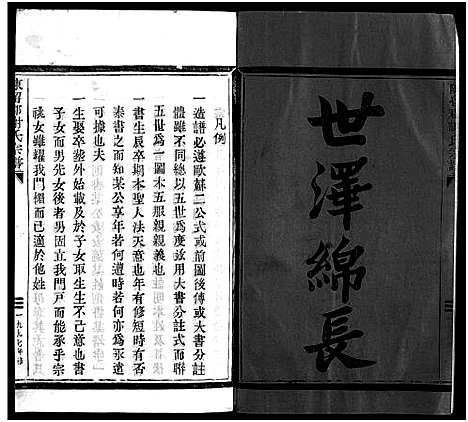 世澤綿長
凡例
一造譜必遵歐蘇二公式或前圖後傳或大書分註
體雖不同總以五世爲度茲用大書分註式而以
五世爲一圖本五服親親義也
一書生辰卒期本聖人法天意也年有修短時有前
後書之則知某公享年若何遭時若何亦爲永遠
可據也夫
一生娶卒墓必載及於子女取生生不已意也書
子女而男先女後者男固立我門戸而能承乎宗
祧女雖耀我門楣而已適於他姓
一九九七年修